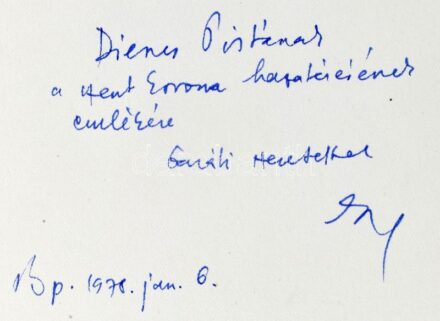 Dienes Pistának
a Szent Korona hazatérésének
emlékére
baráti szeretettel
Bp. 1978. jan. 6.